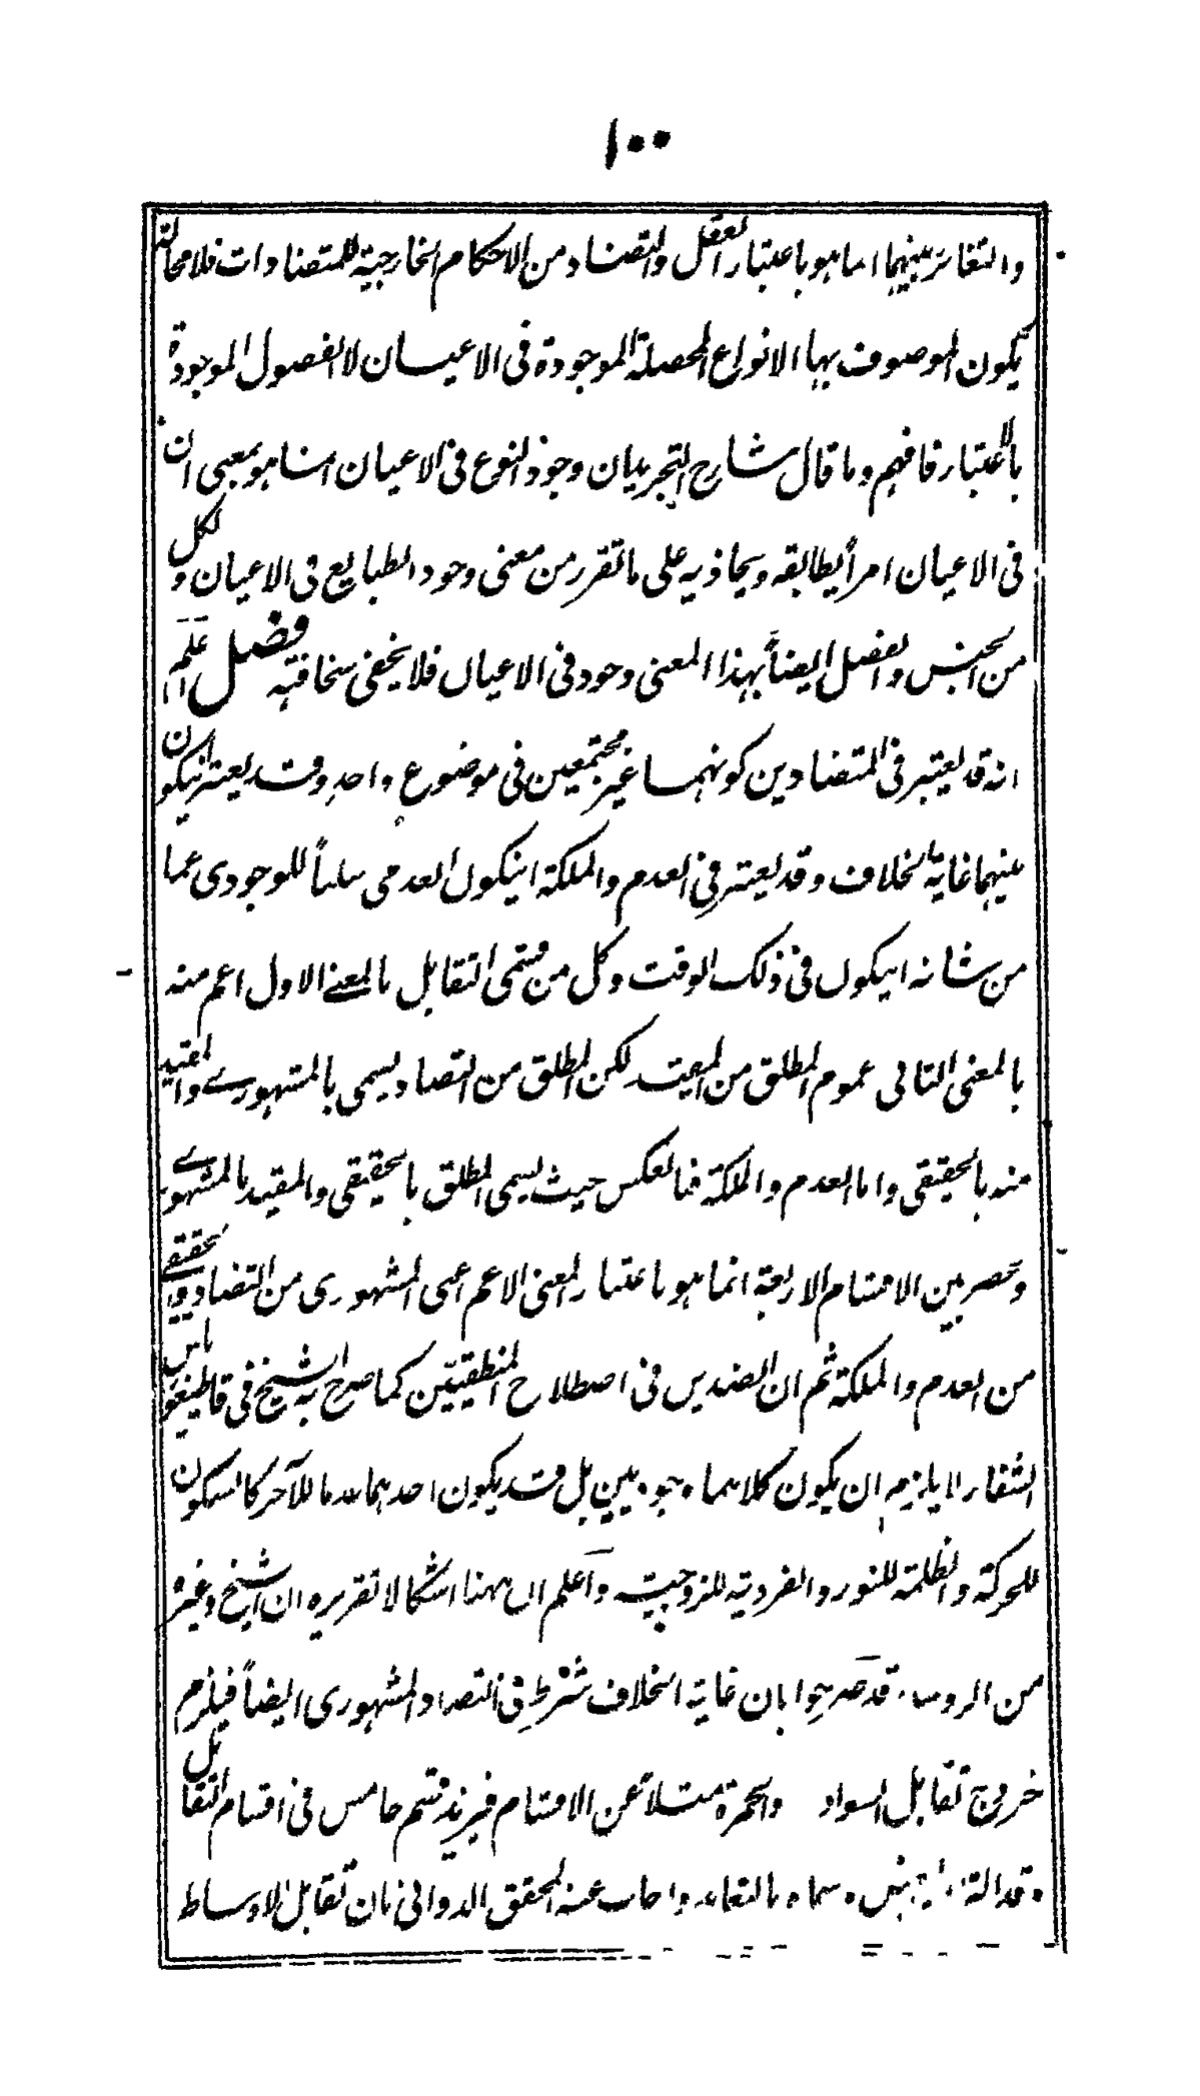 ١٠٠
والتغاير بينهما انما هو باعتبار العقل والتضاد من الاحكام الخارجية للمتضادات فلا محالة
يكون الموصوف بها الانواع المحصلة الموجودة فى الاعيان لا الفصول الموجودة
بالاعتبار فافهم وما قال شارح التجريد بان وجود النوع فى الاعيان انما هو بمعنى ان
فى الاعيان امرأ يطابقه ويحاذيه على ما تقرر من معنى وجود الطبايع فى الاعيان ولكل
من الجنس والفصل ايضاً بهذا المعنى وجود فى الاعيان فلا يخفى سخافته فصل اعلم
انه قد يعتبر فى المتضادين كونهما غير مجتمعين فى موضوع واحد وقد يعتبر ان يكون
بينهما غاية الخلاف وقد يعتبر فى العدم والملكة انيكون العدمى سلباً للوجودى عما
من شانه انيكون فى ذلك الوقت وكل من قسمى التقابل بالمعنى الاول اعم منه
بالمعنى الثانى عموم المطلق من المقيد لكن المطلق من التضاد يسمى بالمشهورى والمقيد
منه بالحقيقى واما العدم والملكة فبالعكس حيث يسمى المطلق بالحقيقى والمقيد بالمشهورى
وحصر بين الاقسام الاربعة انما هو باعتبار المعنى الاعم اعنى المشهورى من التضاد والحقيقى
من العدم والملكة ثم ان الضدين فى اصطلاح المنطقيين كما صرح به الشيخ فى قاطيغورياس
الشفاء لا يلزم ان يكون كلاهما وجوديين بل قد يكون احدهما عدما للآخر كالسكون
للحركة والظلمة للنور والفردية للزوجية واعلم ان ههنا اشكالا تقريره ان الشيخ وغيره
من الروساء قد صرحوا بان غاية الخلاف شرط فى التضاد المشهورى ايضاً فيلزم
خروج تقابل السواد والحمرة مثلا عن الاقسام فيزيد قسم خامس فى اقسام التقابل
وقد وسماه بالتعاند واجاب عنه المحقق الدوانى بان تقابل الاوساط